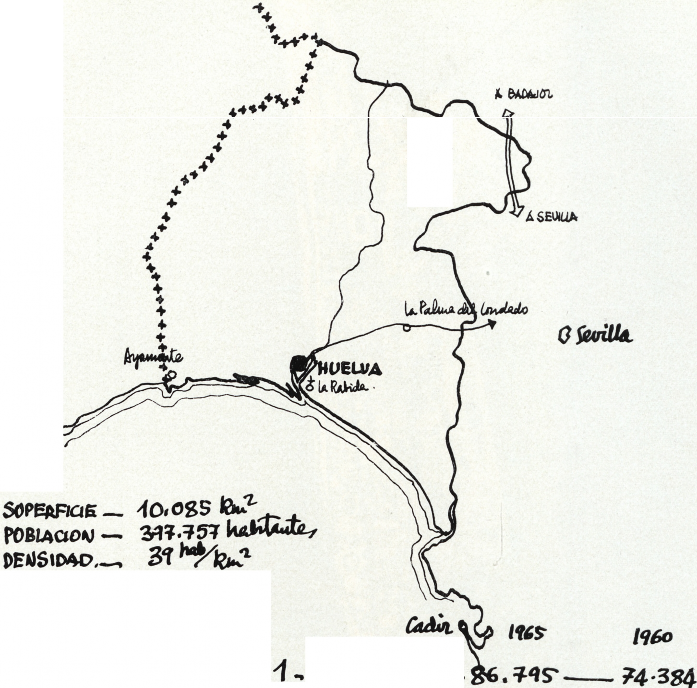 A BADAJOZ
A SEVILLA
La Palma del Condado
Sevilla
Ayamonte
HUELVA
La Rabida.
SOPERFICIE — 10.085 km²
POBLACION — 397.757 habitantes
DENSIDAD. — 39 hab/km²
Cadiz
1965 1960
1. 86.795 — 74.384